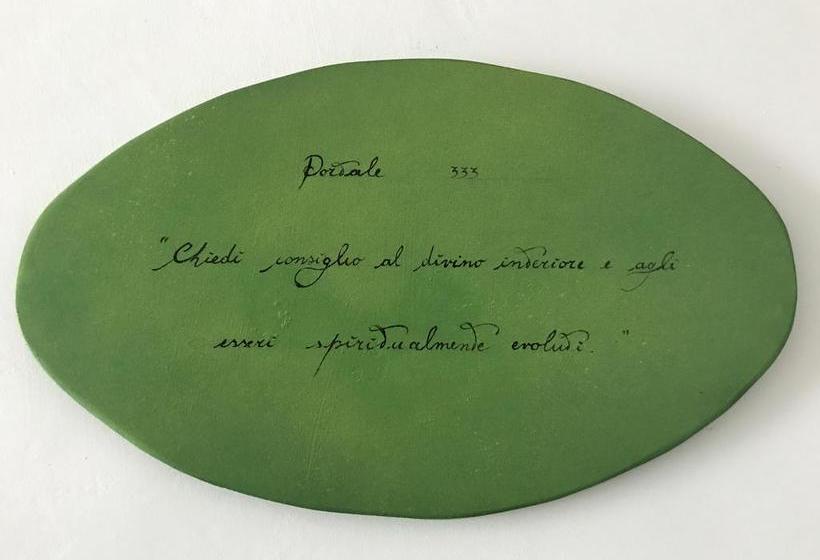 Portale 333
"Chiedi consiglio al divino interiore e agli
esseri spiritualmente evoluti."